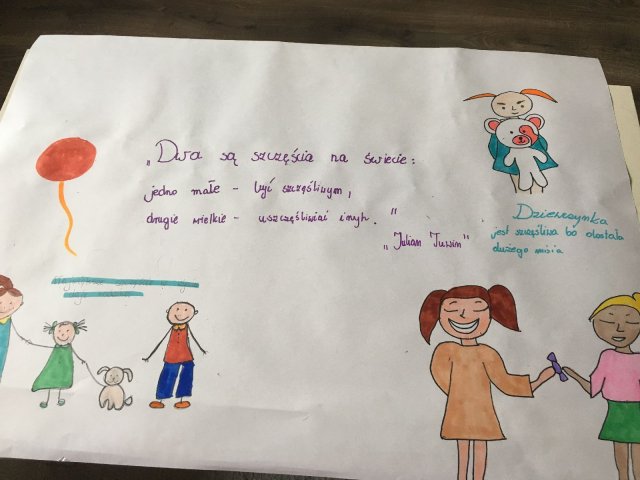 „Dwa są szczęścia na świecie:
jedno małe - być szczęśliwym,
drugie wielkie - uszczęśliwiać innych."
„Julian Tuwim"
Dziewczynka
jest szczęśliwa bo dostała
dużego misia